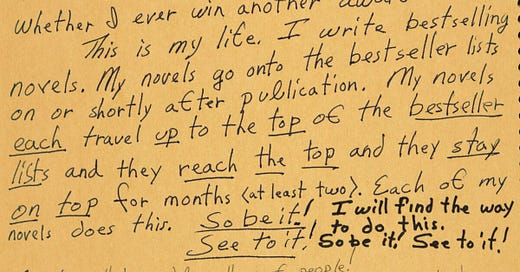 whether I ever win another
This is my life. I write bestselling
novels. My novels go onto the bestseller lists
on or shortly after publication. My novels
each travel up to the top of the bestseller
lists and they reach the top and they stay
on top for months (at least two). Each of my
novels does this. So be it! See to it!
I will find the way
to do this.
So be it! See to it!
of people.